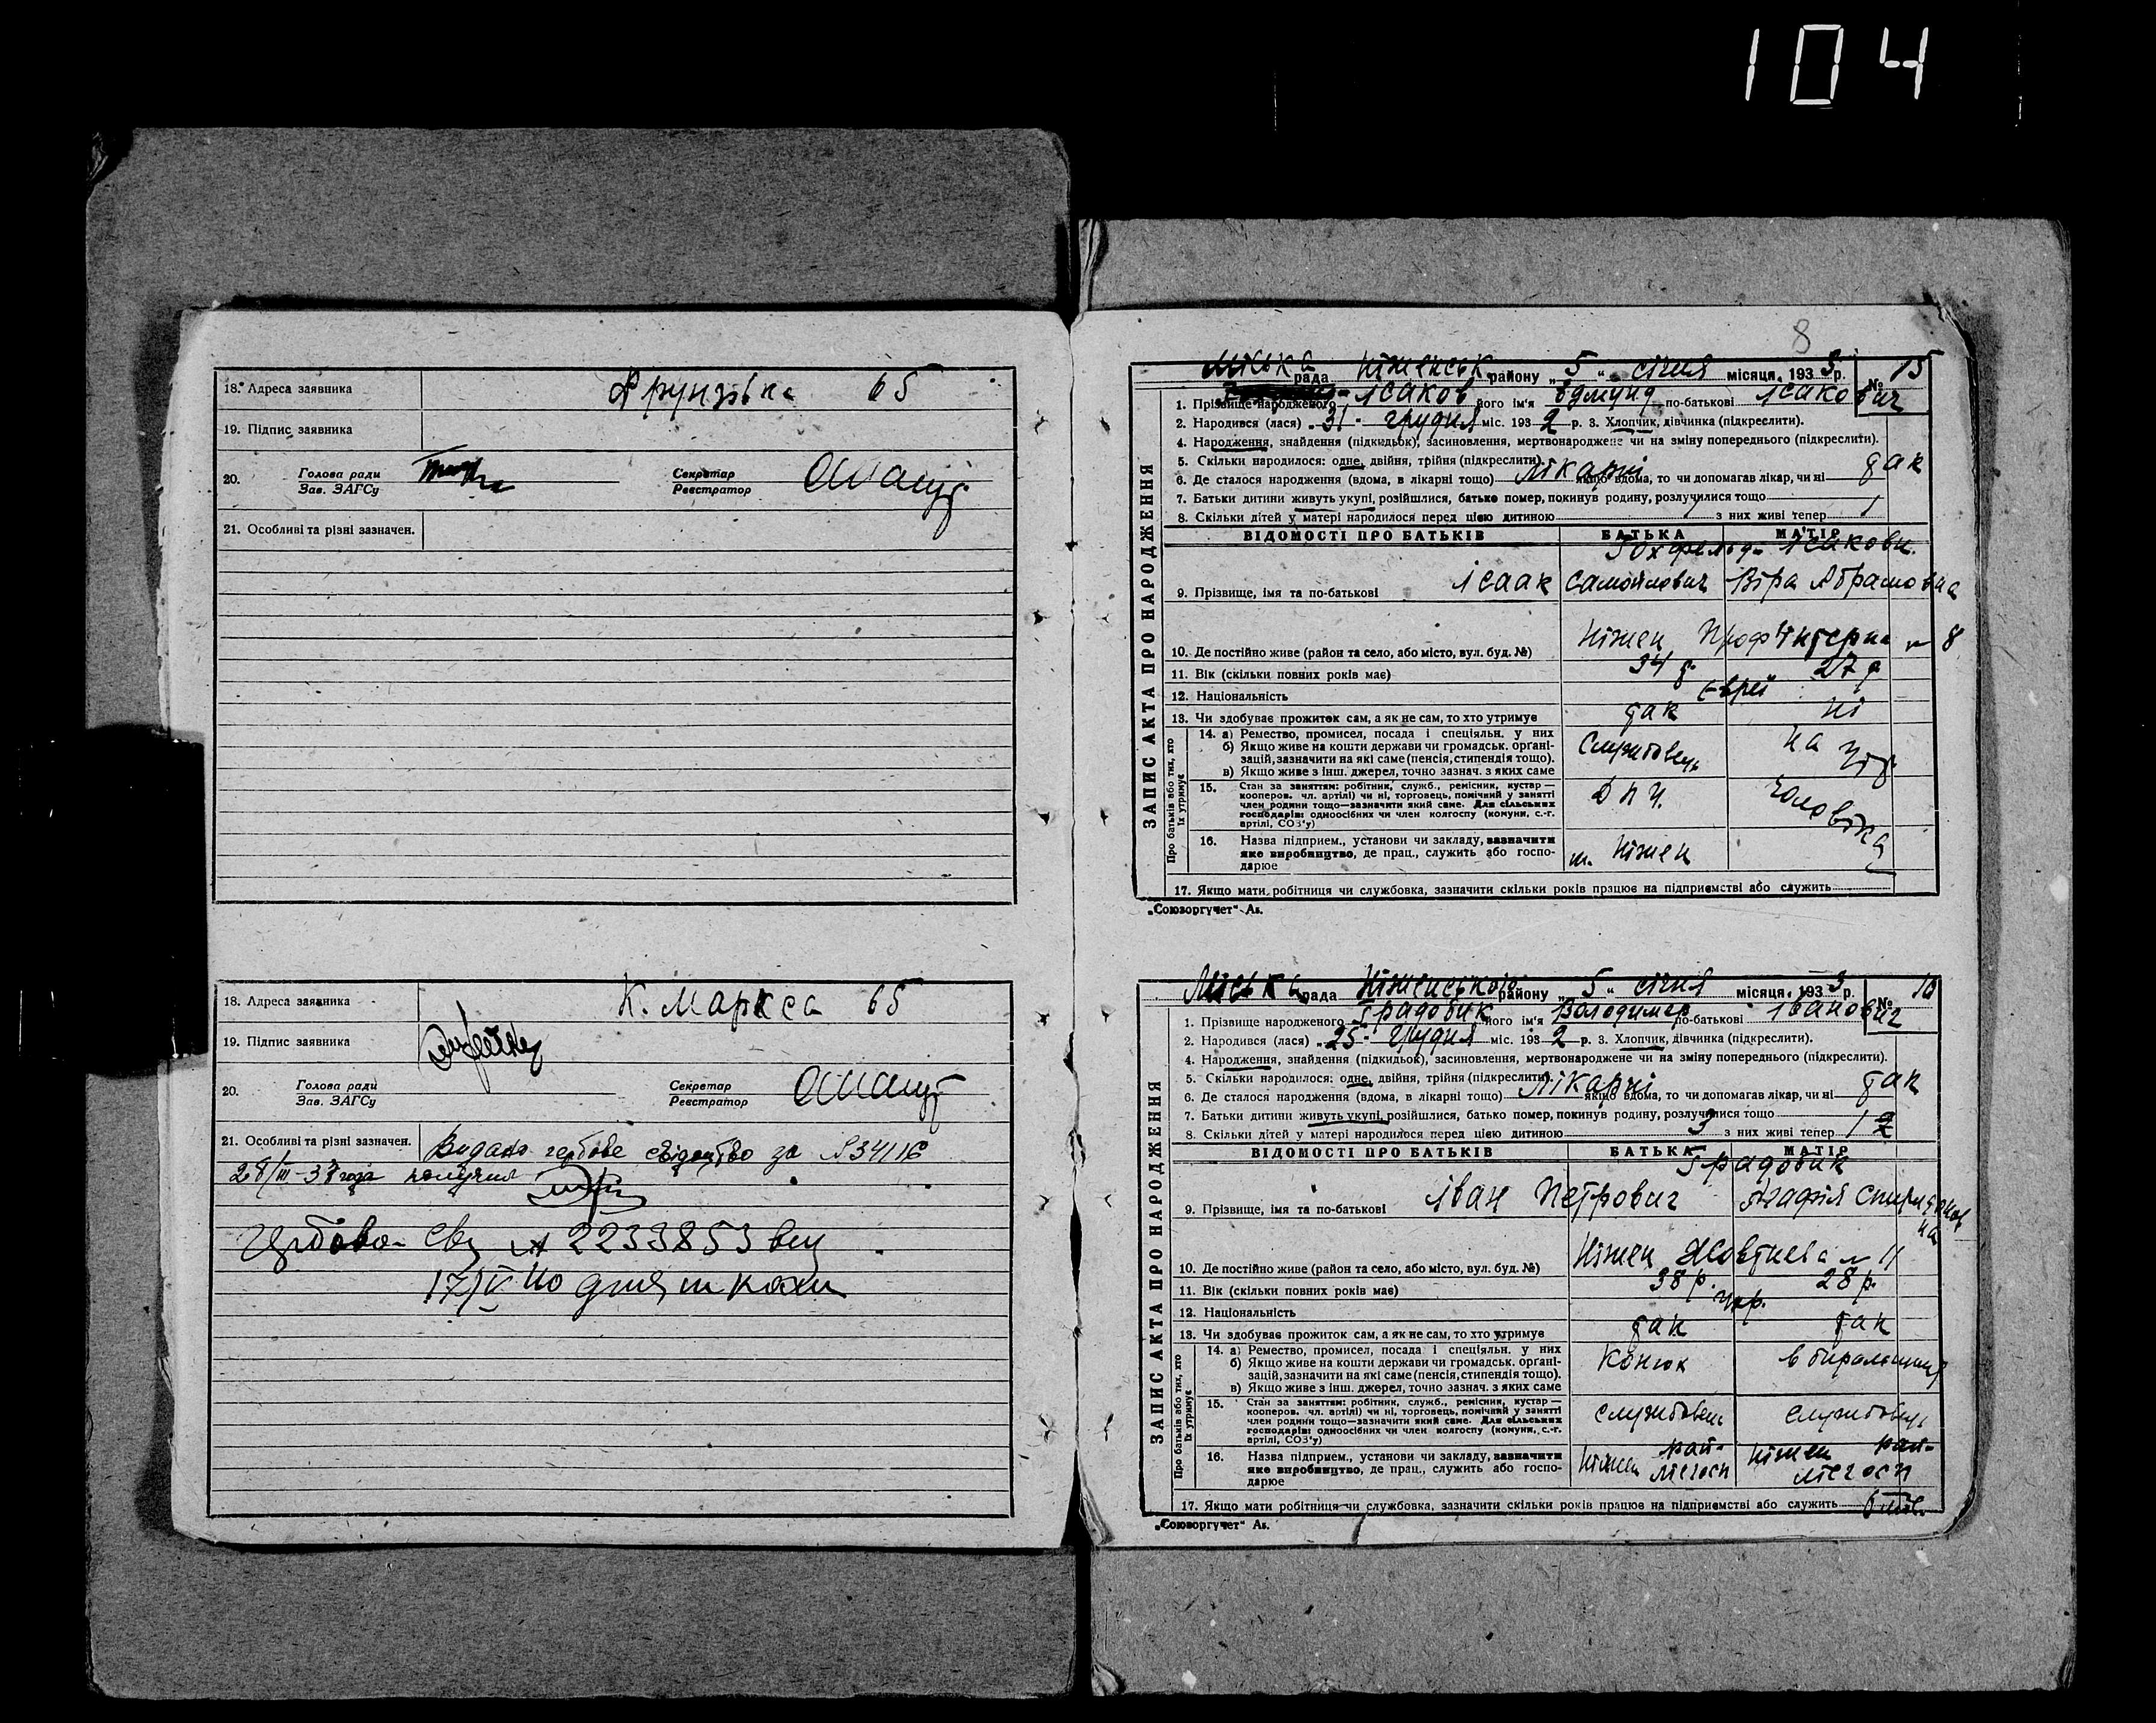 104
18. Адреса заявника Фрунзівка 65
19. Підпис заявника
20. Голова ради Секретар
Зав. ЗАГСу Реєстратор
21. Особливі та різні зазначен.
18. Адреса заявника К. Маркса 65
19. Підпис заявника
20. Голова ради Секретар
Зав. ЗАГСу Реєстратор
21. Особливі та різні зазначен. Видано гербове свідоцтво за №34116
28/III-37 года получил
Гербово- 2233853
17/V
8
Міська рада Ніженськ району „5“ січня місяця, 1933 р. № 15
1. Прізвище народженого Ісаков його ім'я Едмунд по-батькові Ісакович
2. Народився (лася) 31 грудня міс. 1932 р. 3. Хлопчик, дівчинка (підкреслити).
4. Народження, знайдення (підкидьок), засиновлення, мертвонароджене чи на зміну попереднього (підкреслити).
5. Скільки народилося: одне, двійня, трійня (підкреслити).
6. Де сталося народження (вдома, в лікарні тощо) Лікарні якщо вдома, то чи допомагав лікар, чи ні так
7. Батьки дитини живуть укупі, розійшлися, батько помер, покинув родину, розлучилися тощо
8. Скільки дітей у матері народилося перед цією дитиною 1 з них живі тепер 1
ЗАПИС АКТА ПРО НАРОДЖЕННЯ
ВІДОМОСТІ ПРО БАТЬКІВ БАТЬКА МАТІР
9. Прізвище, імя та по-батькові Ісаак Самойлович Віра Абрамовна
10. Де постійно живе (район та село, або місто, вул. буд. №) Ніжен Профінтерна № 8
11. Вік (скільки повних років має) 34 р. 27 р
12. Національність Євреї
13. Чи здобуває прожиток сам, а як не сам, то хто утримує так ні
Про батьків або тих, хто їх утримує
14. а) Ремество, промисел, посада і спеціяльн. у них
б) Якщо живе на кошти держави чи громадськ. органі-
зацій, зазначити на які саме (пенсія, стипендія тощо).
в) Якщо живе з інш. джерел, точно зазнач. з яких саме
Службовець на утр.
15. Стан за заняттям: робітник, служб., ремісник, кустар—
кооперов. чл. артілі) чи ні, торговець, помічний у занятті
член родини тощо—зазначити який саме. Для сільських
господарів: одноосібних чи член колгоспу (комуни, с.-г.
артілі, СОЗ'у)
чоловіка
16. Назва підприєм., установи чи закладу, зазначити
яке виробництво, де прац., служить або госпо-
дарює
м. Ніжен
17. Якщо мати робітниця чи службовка, зазначити скільки років працює на підприємстві або служить
„Союзоргучет“ Ав.
Міська рада Ніженського району „5“ січня місяця, 1933 р. № 16
1. Прізвище народженого Градобик його ім'я Володимир по-батькові Іванович
2. Народився (лася) 25 грудня міс. 1932 р. 3. Хлопчик, дівчинка (підкреслити).
4. Народження, знайдення (підкидьок), засиновлення, мертвонароджене чи на зміну попереднього (підкреслити).
5. Скільки народилося: одне, двійня, трійня (підкреслити).
6. Де сталося народження (вдома, в лікарні тощо) Лікарні якщо вдома, то чи допомагав лікар, чи ні так
7. Батьки дитини живуть укупі, розійшлися, батько помер, покинув родину, розлучилися тощо
8. Скільки дітей у матері народилося перед цією дитиною 3 з них живі тепер 1
ЗАПИС АКТА ПРО НАРОДЖЕННЯ
ВІДОМОСТІ ПРО БАТЬКІВ БАТЬКА МАТІР
Градобик
9. Прізвище, імя та по-батькові Іван Петрович Агафія Спиридоновна
10. Де постійно живе (район та село, або місто, вул. буд. №) Ніжен Жовтнева № 11
11. Вік (скільки повних років має) 38 р. 28 р.
12. Національність Укр.
13. Чи здобуває прожиток сам, а як не сам, то хто утримує так так
Про батьків або тих, хто їх утримує
14. а) Ремество, промисел, посада і спеціяльн. у них
б) Якщо живе на кошти держави чи громадськ. органі-
зацій, зазначити на які саме (пенсія, стипендія тощо).
в) Якщо живе з інш. джерел, точно зазнач. з яких саме
Конюх
15. Стан за заняттям: робітник, служб., ремісник, кустар—
кооперов. чл. артілі) чи ні, торговець, помічний у занятті
член родини тощо—зазначити який саме. Для сільських
господарів: одноосібних чи член колгоспу (комуни, с.-г.
артілі, СОЗ'у)
службовець службовець
16. Назва підприєм., установи чи закладу, зазначити
яке виробництво, де прац., служить або госпо-
дарює
Ніжен рай- Ніжен рай-
лісгосп лісгосп
17. Якщо мати робітниця чи службовка, зазначити скільки років працює на підприємстві або служить 6 міс.
„Союзоргучет“ Ав.